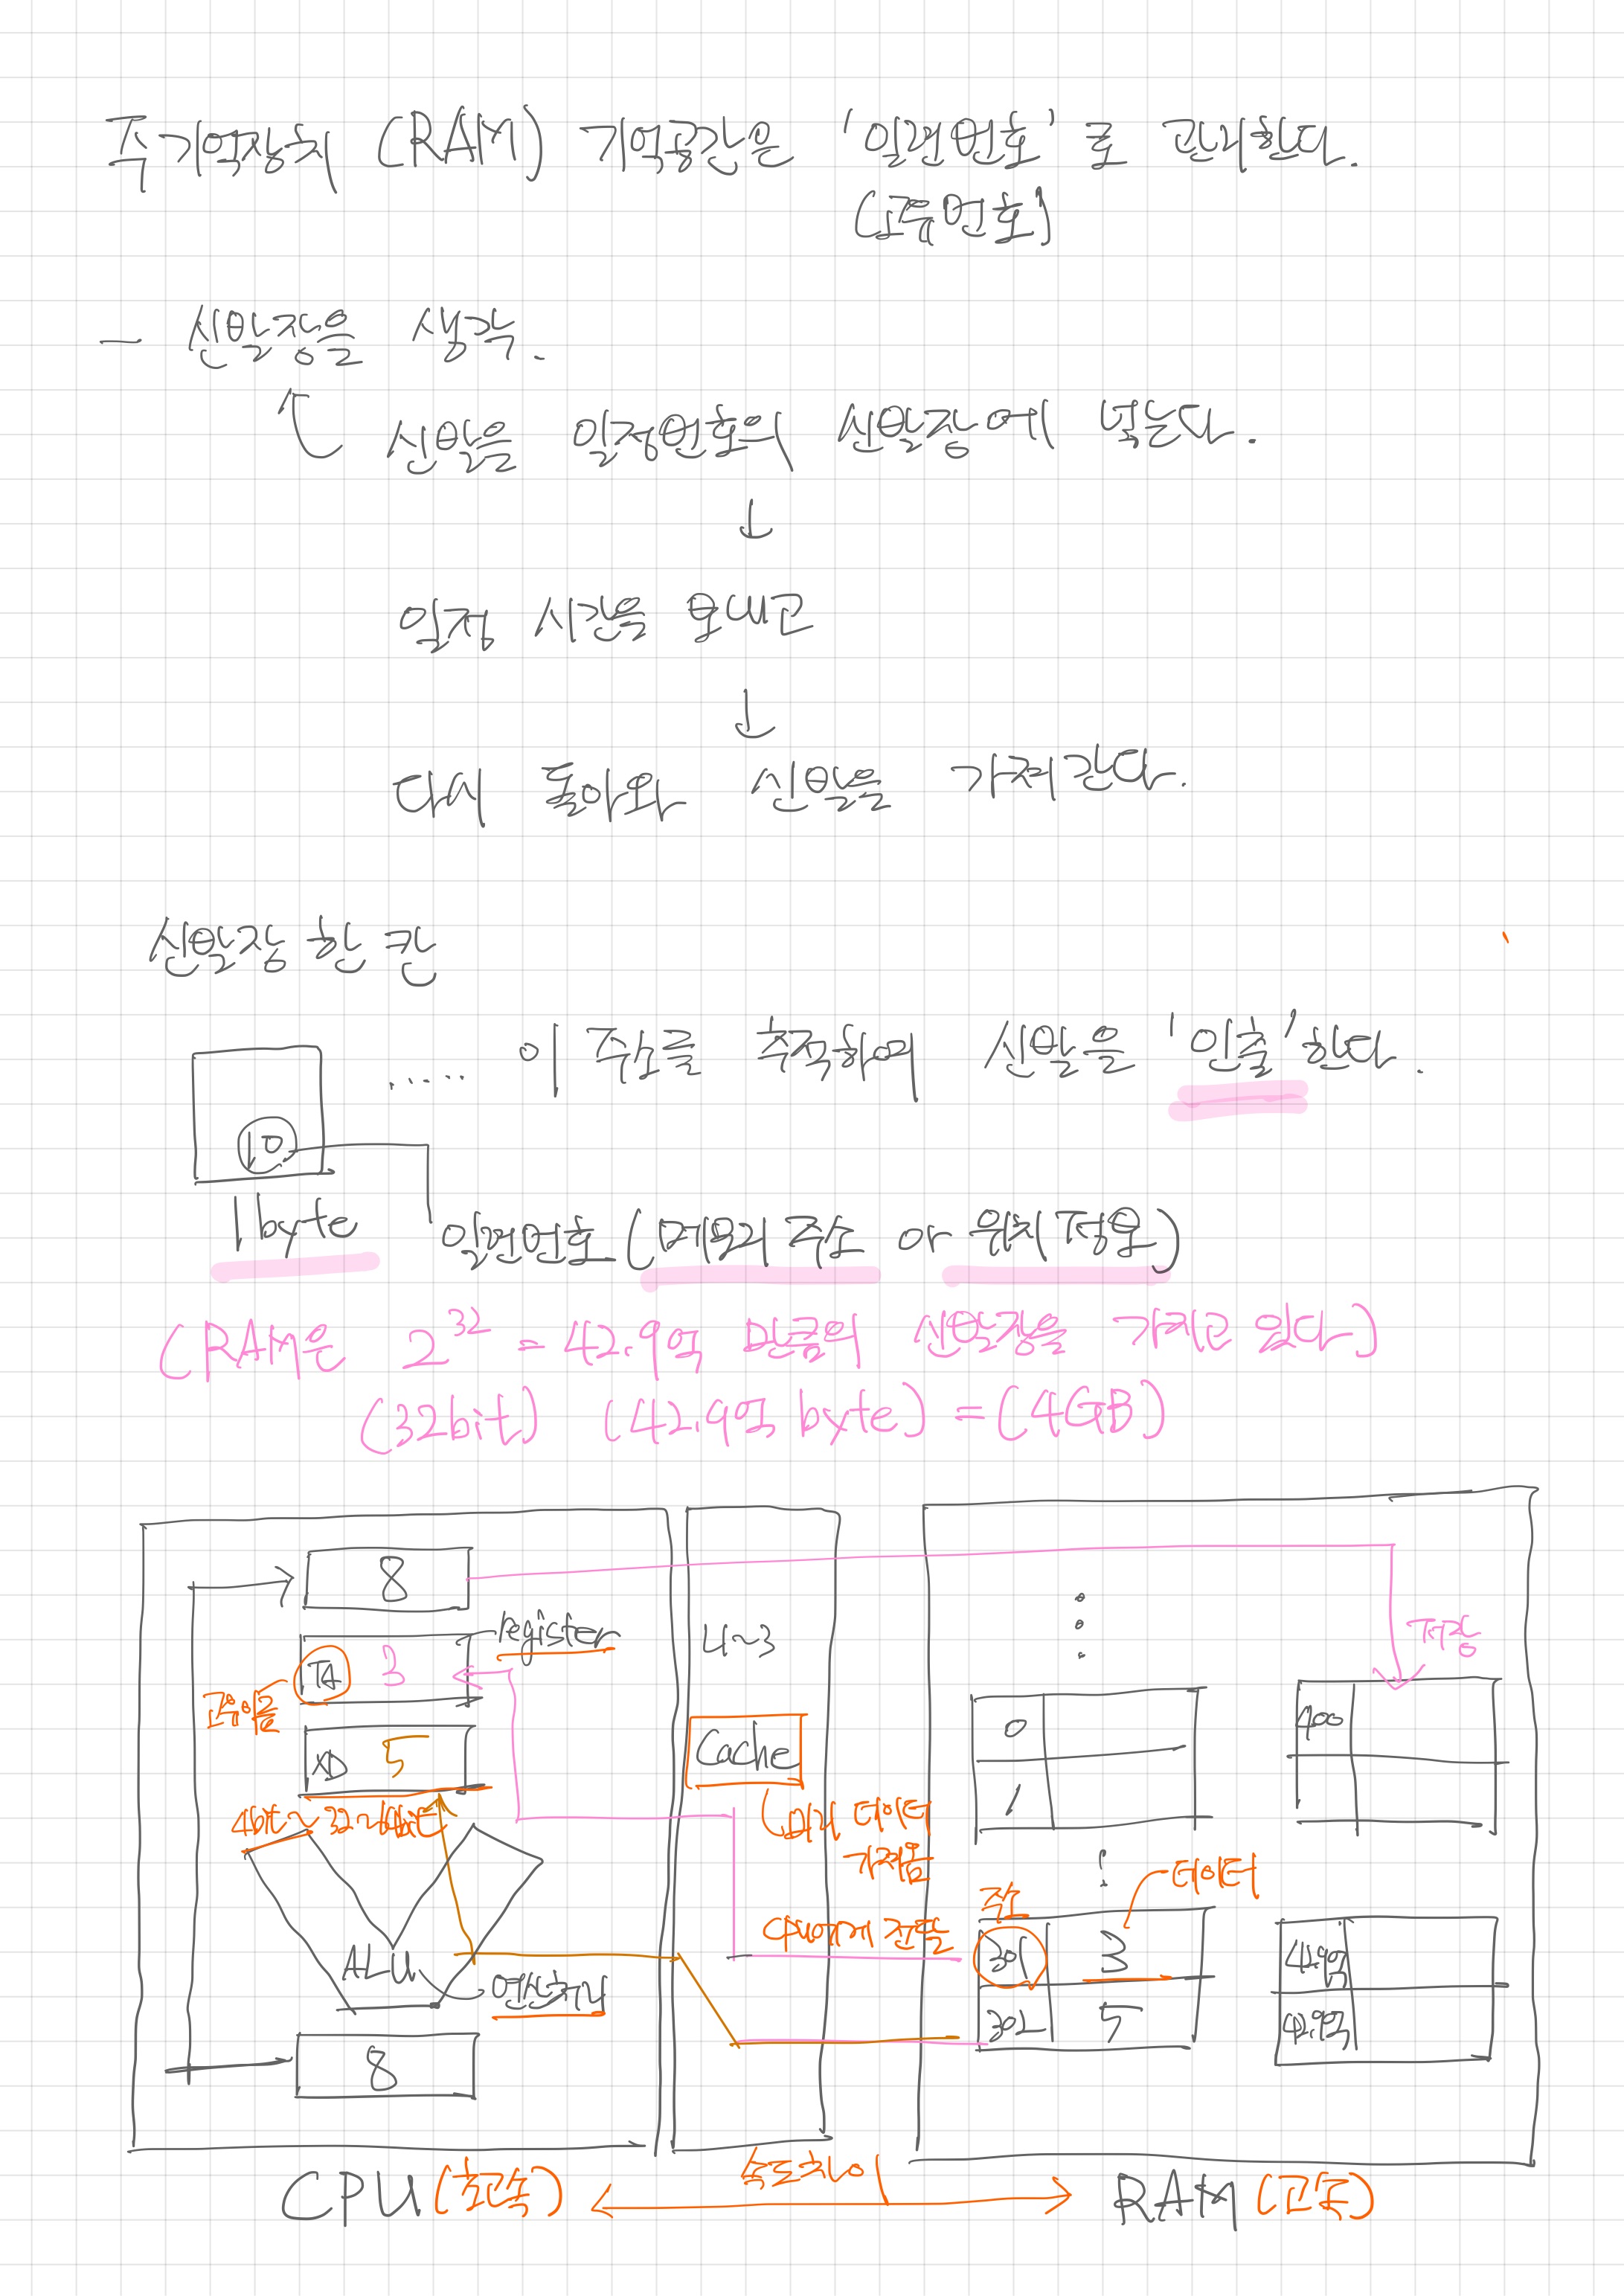 주기억장치 (RAM) 기억공간은 '일련번호'로 관리한다.
(고유번호)
- 신발장을 생각.
신발을 일정번호의 신발장에 넣는다.
일정 시간을 보내고
다시 돌아와 신발을 가져간다.
신발장 한 칸
..... 이 주소를 추적하여 신발을 '인출'한다.
10
1byte
일련번호 (메모리 주소 or 위치 정보)
(RAM은 2^32 = 42.9억 만큼의 신발장을 가지고 있다)
(32bit) (42.9억 byte) = (4GB)
8
register
3
고유이름
XD 5
4bit~32~64bit
ALU
연산처리
8
L1~3
Cache
미리 데이터
가져옴
CPU에게 전달
저장
0
1
400
주소
데이터
301 3
302 5
42.9억
42.9억
속도차이
CPU (초고속)
RAM (고속)